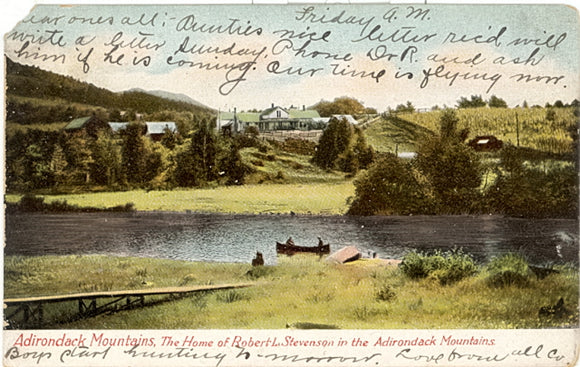 Friday A.M.
Dear ones all:- Aunties nice letter rec'd will
write a letter Sunday, Phone Dr R. and ask
him if he is coming. Our time is flying now.
Adirondack Mountains, The Home of Robert L. Stevenson in the Adirondack Mountains.
Boys start hunting to-morrow. Love from all